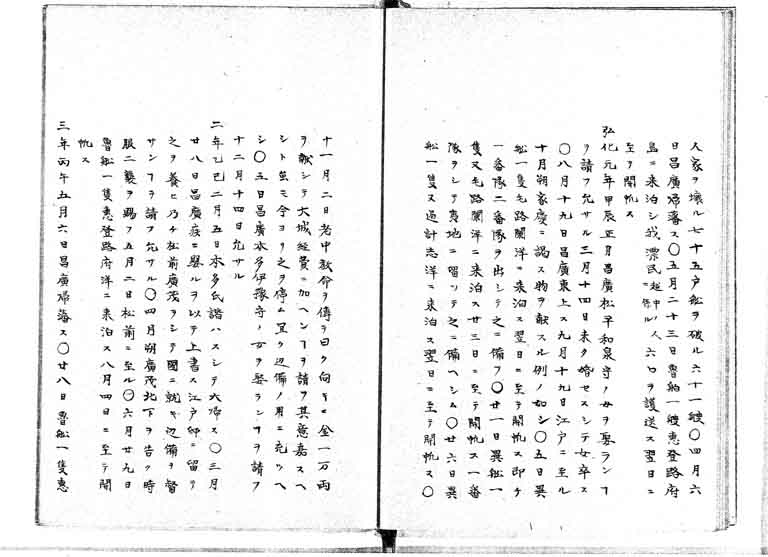 人家ヲ壊ル七十五戸船ヲ破ル六十一艘〇四月六
日昌廣帰藩ス〇五月二十三日魯船一艘恵登路府
島ニ来泊シ我漂民越中ノ人ニ係ル六口ヲ護送ス翌日ニ
至ヲ開帆ス
弘化元年甲辰正月昌廣松平和泉守ノ女ヲ娶ランヿ
ヲ請フ允サル三月十四日未タ婚セスシテ女卒ス
〇八月十九日昌廣東上ス九月十九日江戸ニ至ル
十月朔家慶ニ謁ス物ヲ献スル例ノ如シ〇五日異
船一隻毛路蘭洋ニ来泊ス翌日ニ至テ開帆ス即チ
一番隊二番隊ヲ出シテ之ニ備フ〇廿一日異船一
隻又毛路蘭洋ニ来泊ス廿三日ニ至テ開帆ス一番
隊ヲシテ夷地ニ留ツテ之ニ備ヘシム〇廿六日異
船一隻又過計志洋ニ来泊ス翌日ニ至テ開帆ス〇
十一月二日老中教命ヲ傳ヲ曰ク向キニ金一万両
ヲ献シテ大城経費ニ加ヘンヿヲ請フ其意嘉スヘ
シト虽モ今ヨリ之ヲ停ム宜ク辺備ノ用ニ充ツヘ
シ〇五日昌廣本多伊豫守ノ女ヲ娶ランヿヲ請フ
十二月十四日允サル
二年乙巳二月五日本多氏諧ハスシテ大帰ス〇三月
廿八日昌廣疾ニ嬰ルヲ以テ上書ス江戸邸ニ留リ
之ヲ養ヒ乃チ松前廣茂ヲシテ國ニ就キ辺備ヲ督
サンヿヲ請フ允サル〇四月朔廣茂北下ヲ告ク時
服二襲ヲ賜フ五月二日松前ニ至ル〇六月廿九日
魯船一隻恵登路府洋ニ来泊ス八月四日ニ至テ開
帆ス
三年丙午五月六日昌廣帰藩ス〇廿八日魯船一隻恵